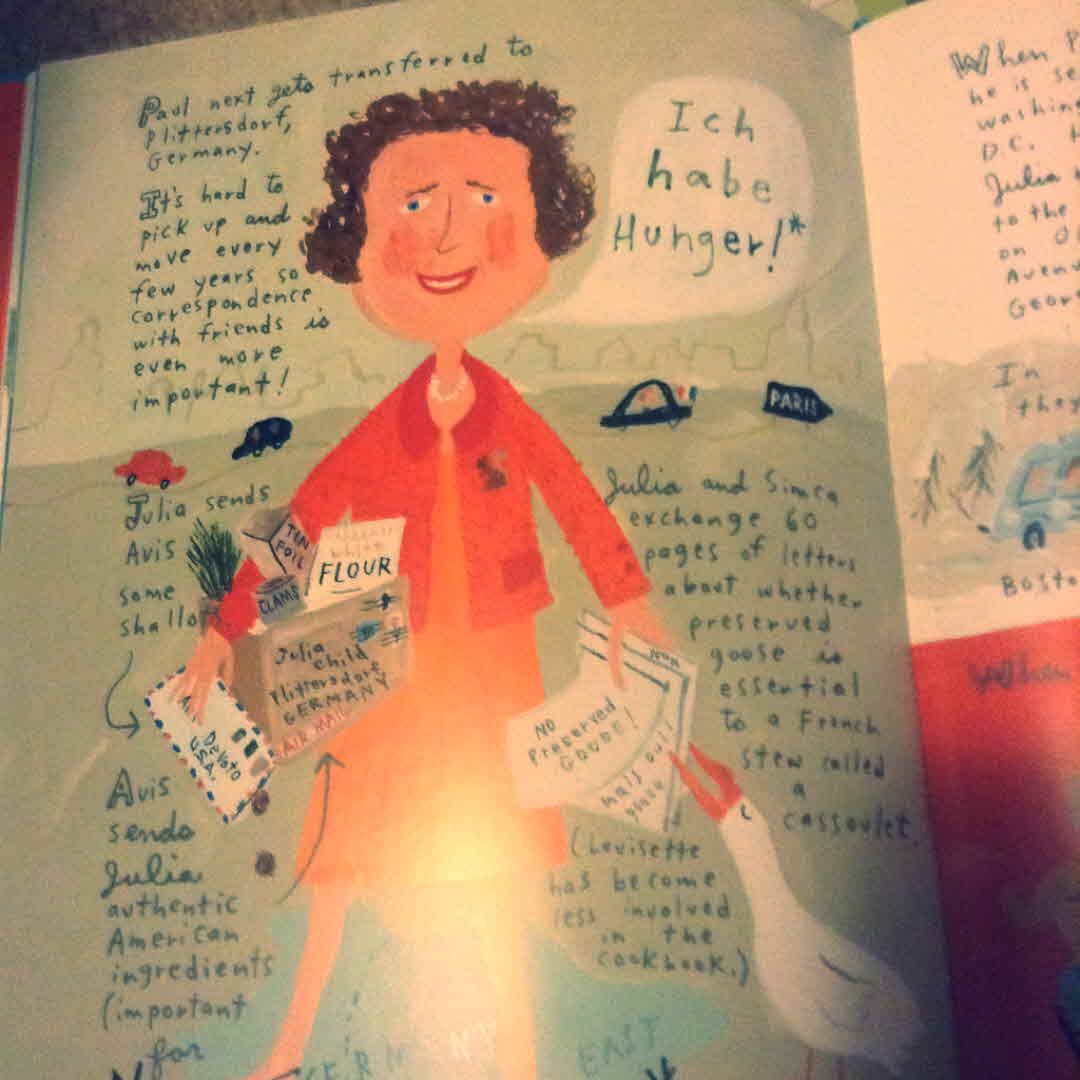 Paul next gets transferred to
Plittersdorf,
Germany.
It's hard to
pick up and
move every
few years so
correspondence
with friends is
even more
important!
Ich
habe
Hunger!*
PARIS
Julia sends
Avis
some
shallots
TIN
FOIL
FLOUR
CLAMS
Julia
Child
Plittersdorf
GERMANY
AIR MAIL
Avis
sends
Julia
authentic
American
ingredients
(important
for
Julia and Simca
exchange 60
pages of letters
about whether
preserved
goose is
essential
to a French
stew called
a
cassoulet.
NON
NO
Preserved
Goose!
(Louisette
has become
less involved
in the
cookbook.)
EAST
When
he is
D.C.
Julia
to the
on
In
they
When